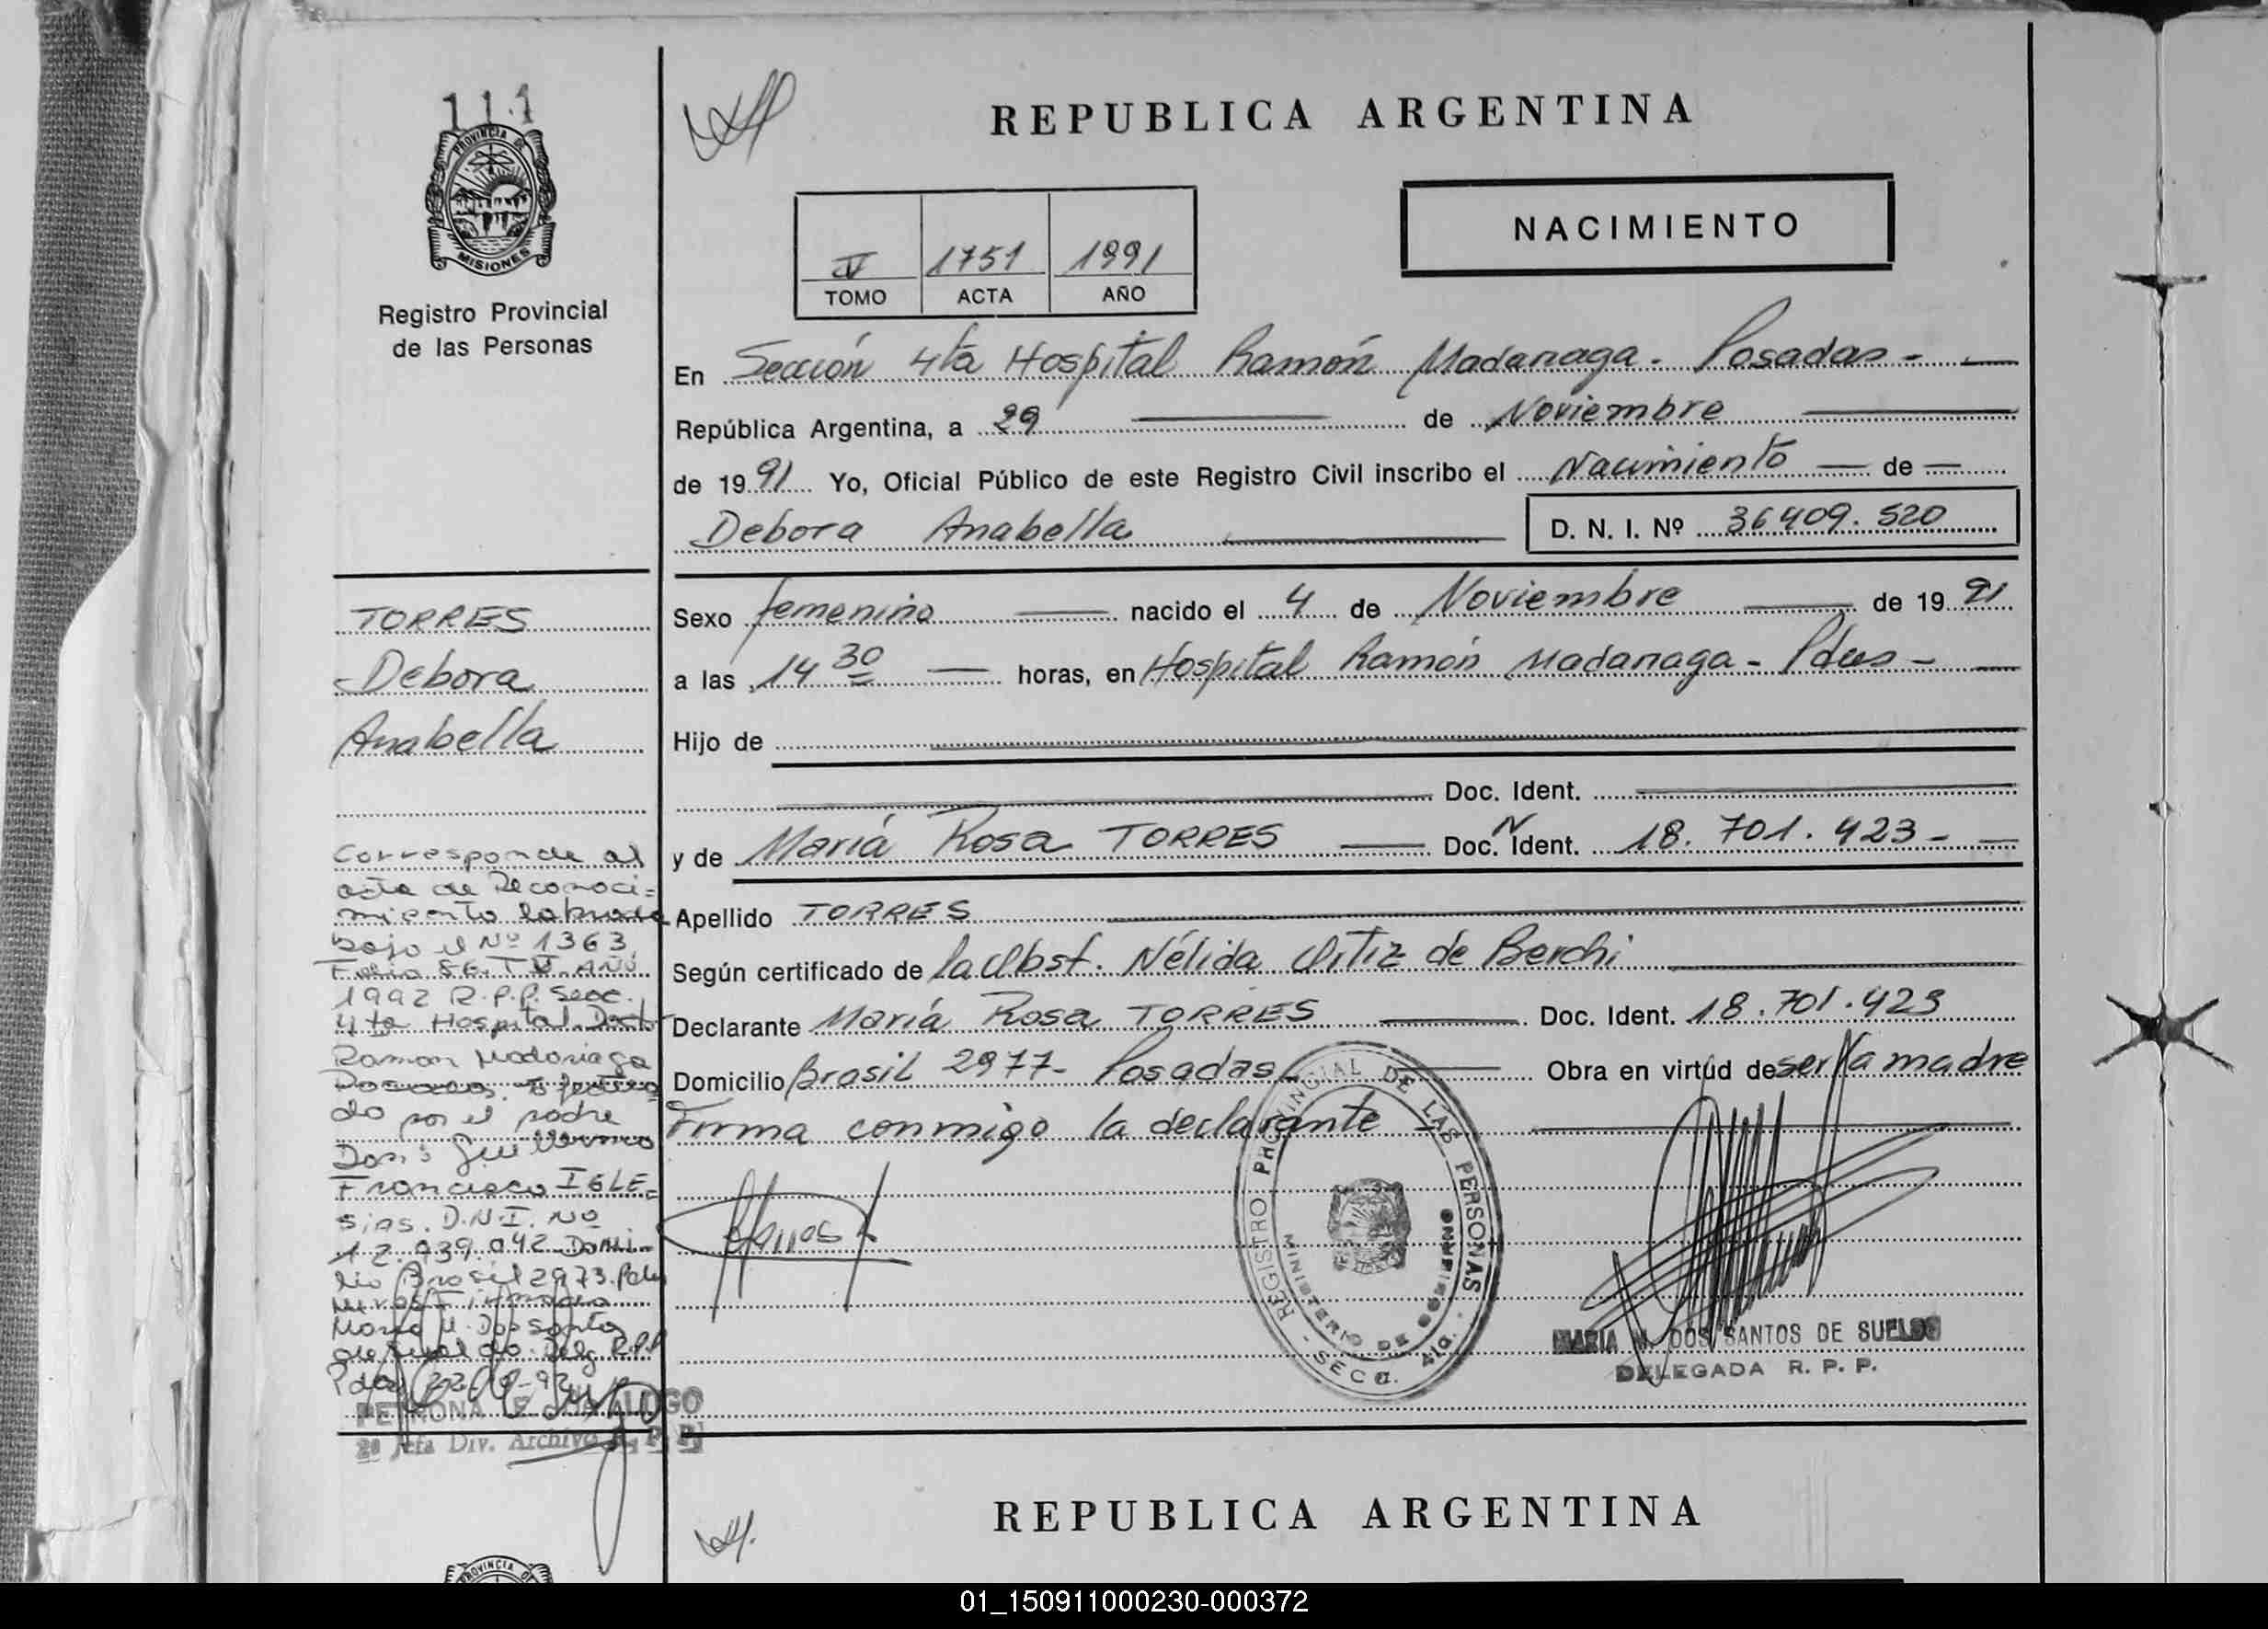 111
PROVINCIA DE
MISIONES
Registro Provincial
de las Personas
REPUBLICA ARGENTINA
NACIMIENTO
IV 1751 1991
TOMO ACTA AÑO
En Sección 4ta Hospital Ramón Madariaga - Posadas -
República Argentina, a 29 de Noviembre
de 1991 Yo, Oficial Público de este Registro Civil inscribo el Nacimiento de
Debora Anabella D. N. I. Nº 36409.520
Sexo femenino nacido el 4 de Noviembre de 1991
a las 14 30 horas, en Hospital Ramón Madariaga - Pdas -
Hijo de
Doc. Ident.
y de María Rosa TORRES Doc. N Ident. 18.701.423 -
Apellido TORRES
Según certificado de la Obst. Nélida Ortiz de Berchi
Declarante María Rosa TORRES Doc. Ident. 18.701.423
Domicilio Brasil 2977 - Posadas Obra en virtud de ser la madre
Firma conmigo la declarante
REGISTRO PROVINCIAL DE LAS PERSONAS
MINISTERIO DE GOBIERNO
SECC. 4ta.
MARIA M. DOS SANTOS DE SUELDO
DELEGADA R. P. P.
TORRES
Debora
Anabella
Corresponde al
acta de Reconoci=
miento labrada
bajo el Nº 1363
Folio 86. T IV. AÑO
1992 R.P.P. Secc.
4ta Hospital Doct
Ramon Madariaga
Posadas. Efectua
do por el padre
Don: Guillermo
Francisco IGLE=
sias. D.N.I. Nº
12.939.042 Domi-
lio Brasil 2973. Pdas
Mnes. Firmado
Maria M. Dos Santos
de Sueldo. Delg R.P.P
Pdas
PETRONA
2ª Jefa Div. Archivo R. P. P.
REPUBLICA ARGENTINA
PROVINCIA DE
01_150911000230-000372